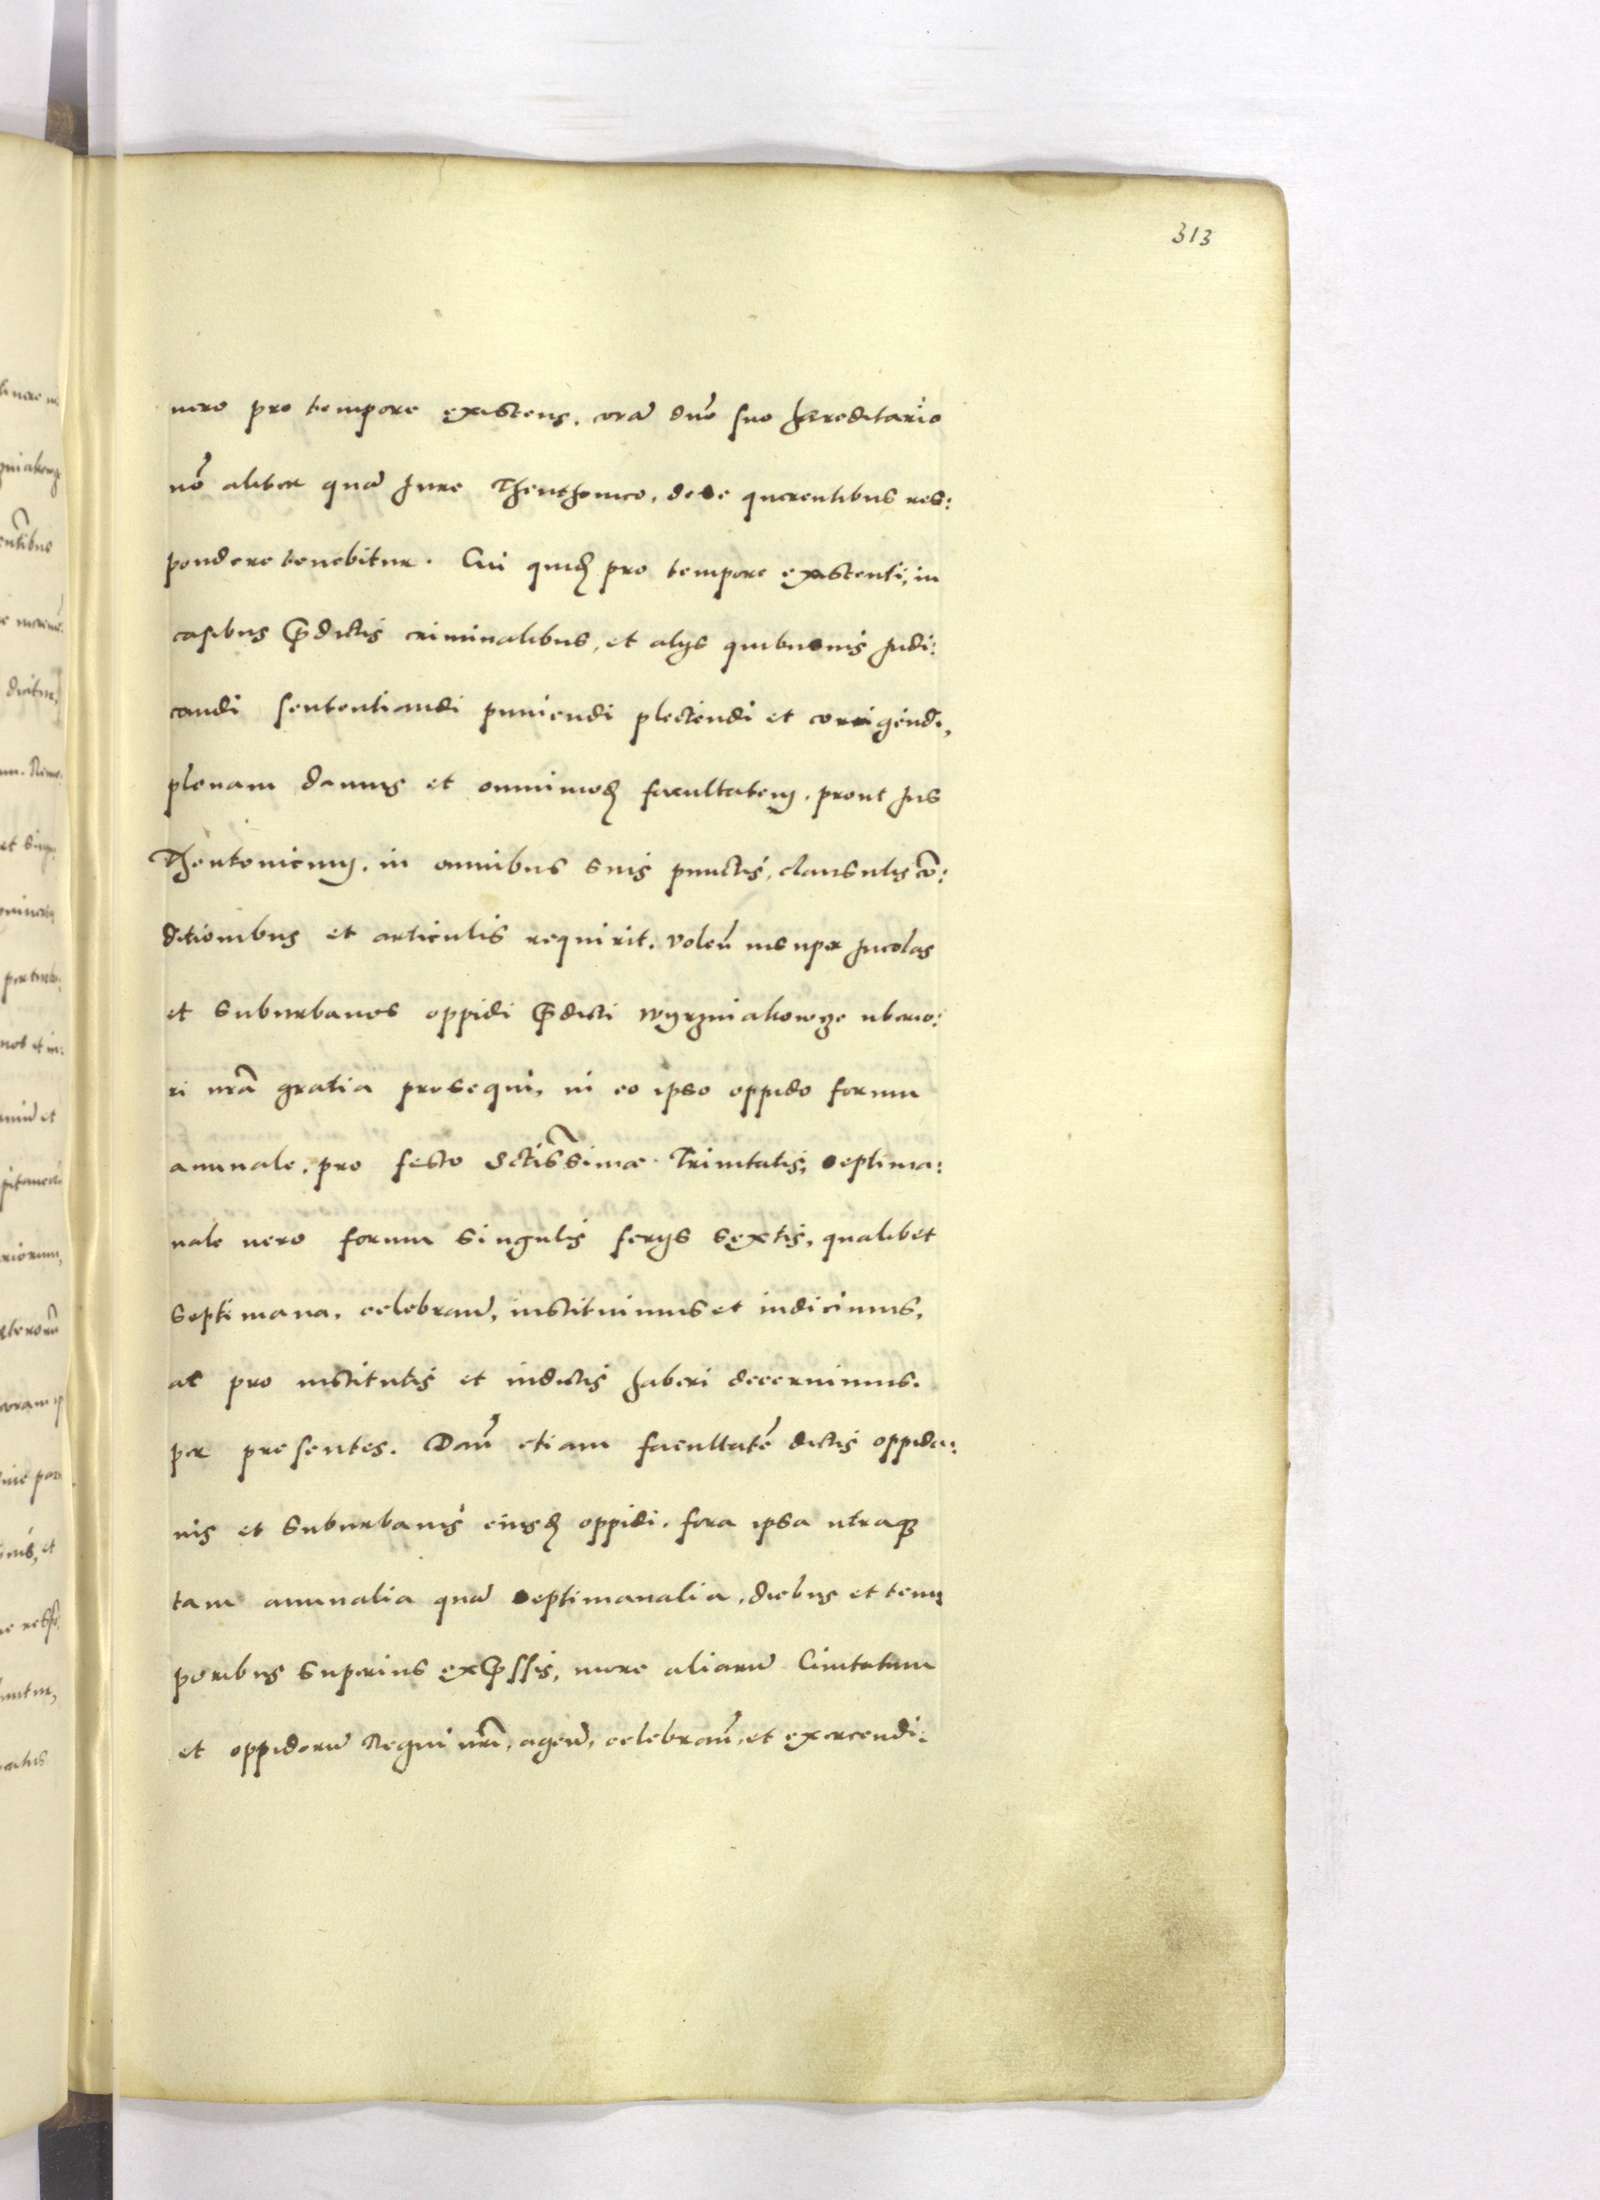 313
vero pro tempore existens. corā dnō suo hæreditario
nō aliter quā Jure Theuthonico, de se querentibus res:
pondere tenebitur. Cui quidē pro tempore existenti, in
casibus p̄dictis criminalibus, et alijs quibusvis Judi:
candi sententiandi puniendi plectendi et corrigendi,
plenam damus et omnimodā facultatem. prout Jus
Theutonicum. in omnibus suis punctis, clausulis cō:
ditionibus et articulis requirit. Volen̄ insuper Jncolas
et suburbanos oppidi p̄dicti Wyrzniakowze uberio:
ri nr̄a gratia prosequi, in eo ipso oppido forum
annuale. pro festo Sctīssimæ Trinitatis, septima:
nale vero forum singulis ferijs sextis, qualibet
septimana, celebran̄, instituimus et indicimus,
ac pro institutis et indictis haberi decernimus.
per presentes. Dan̄ etiam facultatē dictis oppida:
nis et suburbanis eiusdē oppidi. fora ipsa utraq3
tam annualia quā septimanalia, diebus et tem
poribus superius exp̄ssis, more aliarū Civitatum
et oppidorū Regni nr̄i, agen̄, celebran̄, et exercendi: